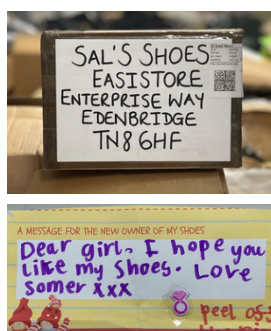 SAL'S SHOES
EASISTORE
ENTERPRISE WAY
EDENBRIDGE
TN8 6HF
A MESSAGE FOR THE NEW OWNER OF MY SHOES
Dear girl, I hope you
like my shoes. Love
somer xxx
peel off